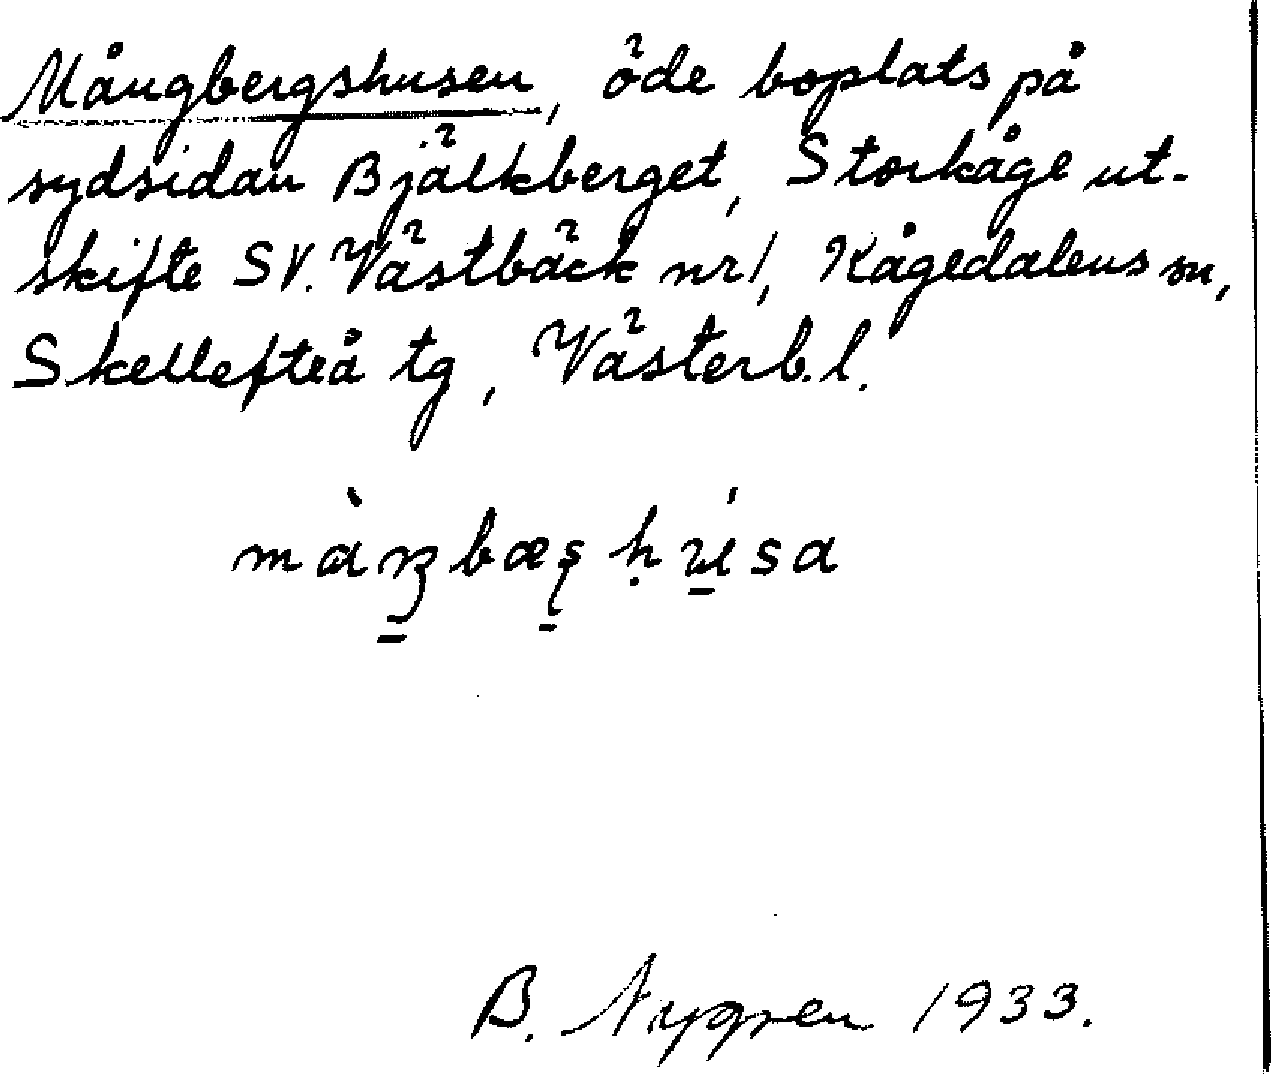 Mångbergshusen, öde boplats på
sydsidan Bjälkberget, Storkåge ut-
skifte SV. Västbäck nr 1, Kågedalens sn,
Skellefteå tg, Västerb.l.
màŋbæşḥúsa
B. Nygren 1933.